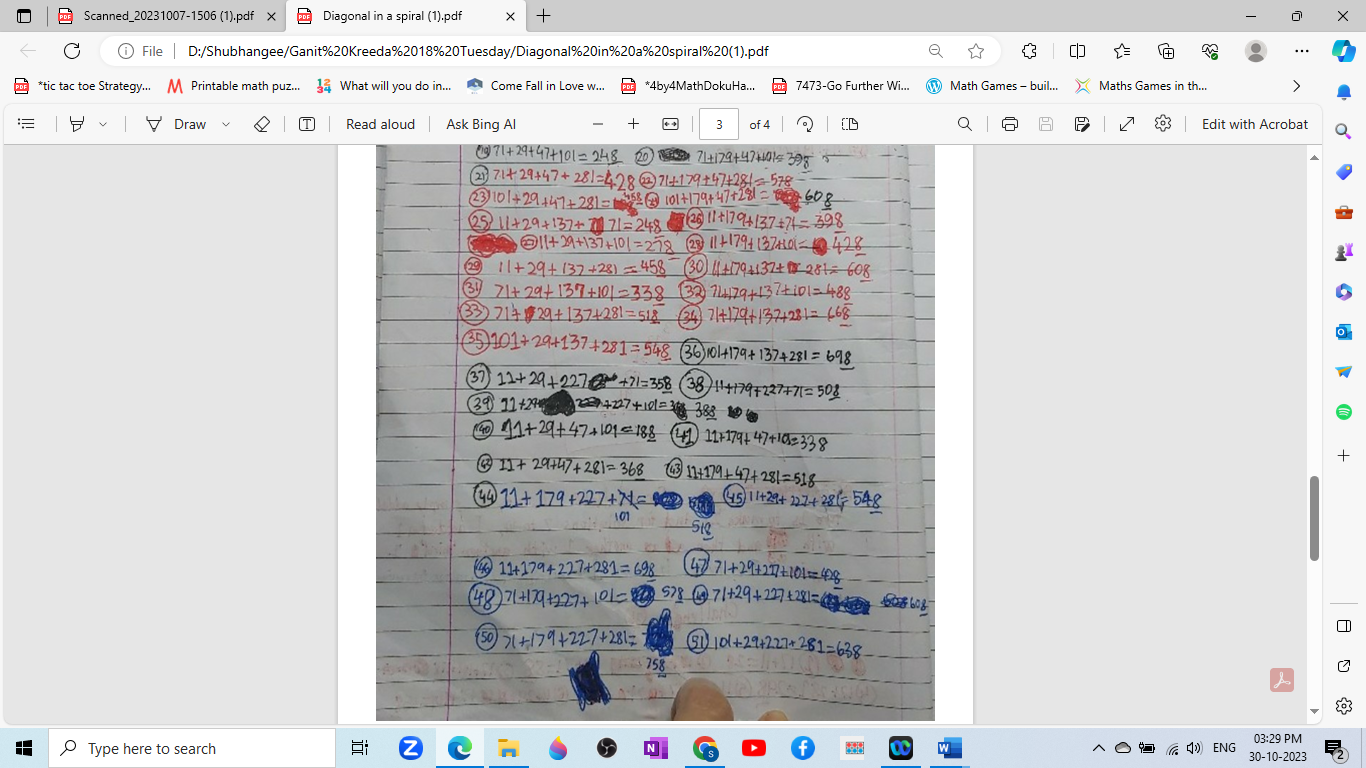 Scanned_20231007-1506 (1).pdf Diagonal in a spiral (1).pdf
File D:/Shubhangee/Ganit%20Kreeda%2018%20Tuesday/Diagonal%20in%20a%20spiral%20(1).pdf
*tic tac toe Strategy... Printable math puz... What will you do in... Come Fall in Love w... *4by4MathDokuHa... 7473-Go Further Wi... Math Games – buil... Maths Games in th...
Draw Read aloud Ask Bing AI 3 of 4 Edit with Acrobat
71+29+47+101=248 20 71+179+47+101=398
21 71+29+47+281=428 22 71+179+47+281=578
23 101+29+47+281=458 101+179+47+281=608
25 11+29+137+71=248 26 11+179+137+71=398
27 11+29+137+101=278 28 11+179+137+101=428
29 11+29+137+281=458 30 11+179+137+281=608
31 71+29+137+101=338 32 71+179+137+101=488
33 71+29+137+281=518 34 71+179+137+281=668
35 101+29+137+281=548 36 101+179+137+281=698
37 11+29+227+71=358 38 11+179+227+71=508
39 11+29+227+101= 388
40 11+29+47+101=188 41 11+179+47+101=338
42 11+29+47+281=368 43 11+179+47+281=518
44 11+179+227+71= 45 11+29+227+281=548
101 518
46 11+179+227+281=698 47 71+29+227+101=428
48 71+179+227+101=578 49 71+29+227+281=608
50 71+179+227+281= 51 101+29+227+281=638
758
Type here to search ENG 03:29 PM
30-10-2023 2